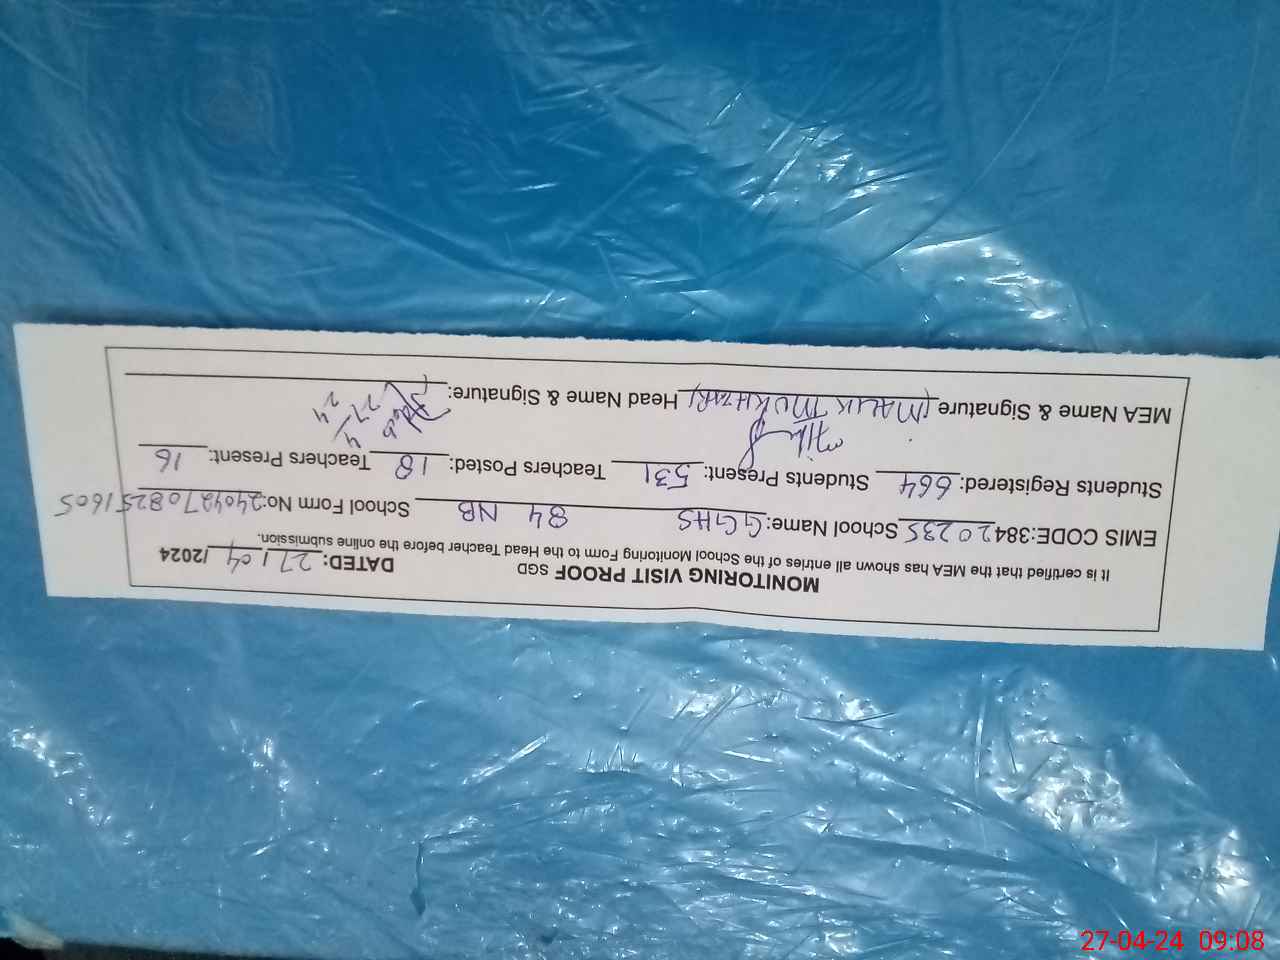 MONITORING VISIT PROOF SGD DATED: 27/04/2024
It is certified that the MEA has shown all entries of the School Monitoring Form to the Head Teacher before the online submission.
EMIS CODE:38420235 School Name: GGHS 84 NB School Form No: 24042708251605
Students Registered: 664 Students Present: 531 Teachers Posted: 18 Teachers Present: 16
MEA Name & Signature (MALIK MUKHTAR) Head Name & Signature:
27/4
27-04-24 09:08